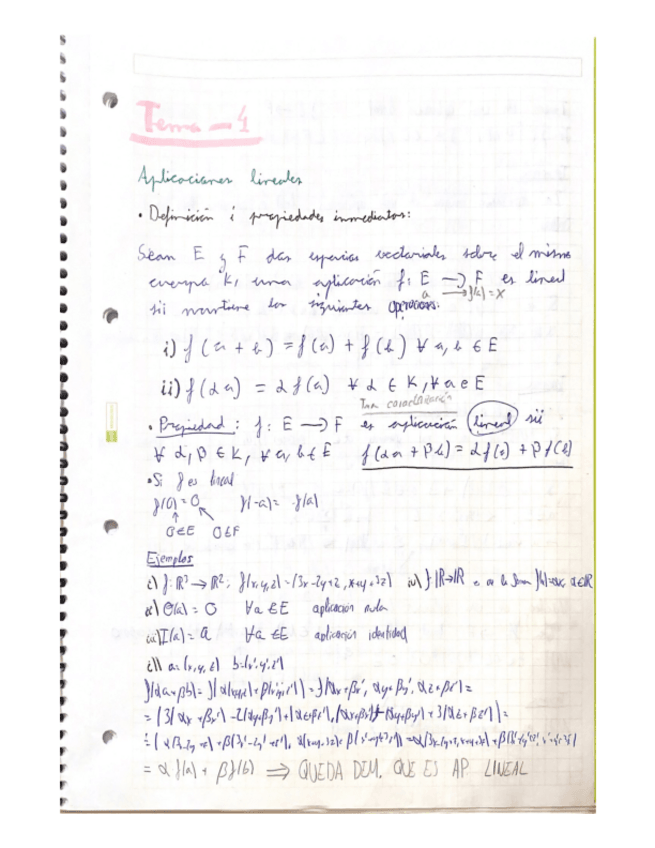 Tema - 4
Aplicaciones lineales
• Definición i propiedades inmediatas:
Sean E y F dos espacios vectoriales sobre el mismo
cuerpo K, una aplicación f: E → F es lineal
a → f(a) = x
sii mantiene las siguientes operaciones:
i) f(a + b) = f(a) + f(b) ∀ a, b ∈ E
ii) f(αa) = α f(a) ∀ α ∈ K, ∀ a ∈ E
Tma caracterización
• Propiedad: f: E → F es aplicación lineal sii
∀ α, β ∈ K, ∀ a, b ∈ E f(αa + βb) = αf(a) + βf(b)
• Si f es lineal
f(0) = 0 f(-a) = -f(a)
0 ∈ E 0 ∈ F
Ejemplos
i) f: ℝ³ → ℝ²; f(x,y,z) = (3x-2y+z, x+y+3z) iv) f: ℝ→ℝ es de la forma f(x)=ax, a∈ℝ
ii) O(a) = 0 ∀a ∈ E aplicación nula
iii) I(a) = a ∀a ∈ E aplicación identidad
i) a=(x,y,z) b=(x',y',z')
f(αa+βb) = f(α(x,y,z)+β(x',y',z')) = f(αx+βx', αy+βy', αz+βz') =
= (3(αx+βx') -2(αy+βy')+(αz+βz'), (αx+βx')+(αy+βy')+3(αz+βz')) =
= α f(a) + β f(b) ⇒ QUEDA DEM. QUE ES AP LINEAL